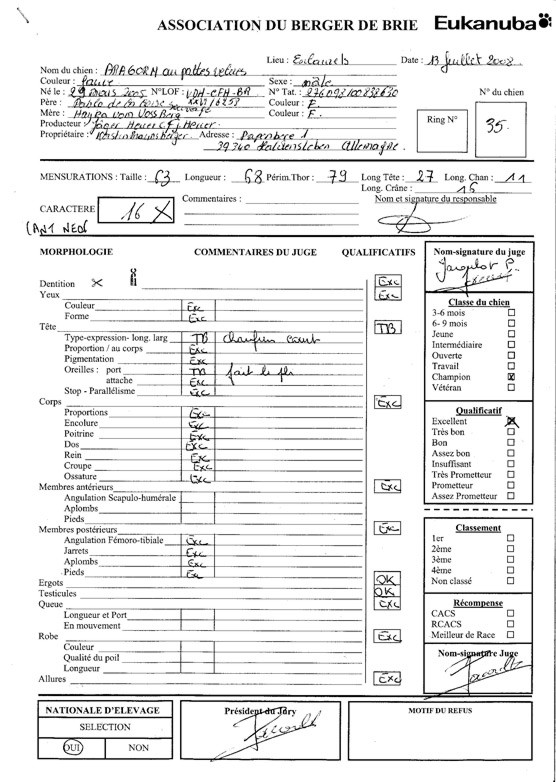 ASSOCIATION DU BERGER DE BRIE Eukanuba
Lieu : Date : 13 juillet 2008
Nom du chien : ARAGORN au pattes velues
Couleur : fauve Sexe : mâle
Né le : 29 mars 2005 N°LOF : VDH-CFH-BR N° Tat. : 276098100832630
Père : Pablo de la Couleur : F.
Mère : vom Couleur : F.
Producteur : Jäger Heuer
Propriétaire : Adresse : 1
39340 Haldensleben Allemagne
N° du chien
Ring N° 35.
MENSURATIONS : Taille : 63 Longueur : 68 Périm.Thor : 79 Long Tête : 27 Long. Chan : 11
Long. Crâne : 16
CARACTERE 16 X Commentaires : Nom et signature du responsable
MORPHOLOGIE COMMENTAIRES DU JUGE QUALIFICATIFS
Dentition Exc
Yeux Exc
Couleur Exc
Forme Exc
Tête TB
Type-expression- long. larg TB chanfrein court
Proportion / au corps Exc
Pigmentation Exc
Oreilles : port TB fait le pli
attache Exc
Stop - Parallélisme Exc
Corps Exc
Proportions Exc
Encolure Exc
Poitrine Exc
Dos Exc
Rein Exc
Croupe Exc
Ossature Exc
Membres antérieurs Exc
Angulation Scapulo-humérale
Aplombs
Pieds
Membres postérieurs Exc
Angulation Fémoro-tibiale Exc
Jarrets Exc
Aplombs Exc
Pieds Exc
Ergots OK
Testicules OK
Queue Exc
Longueur et Port
En mouvement
Robe Exc
Couleur
Qualité du poil
Longueur
Allures Exc
Nom-signature du juge
Jacquelot P.
Classe du chien
3-6 mois
6- 9 mois
Jeune
Intermédiaire
Ouverte
Travail
Champion X
Vétéran
Qualificatif
Excellent X
Très bon
Bon
Assez bon
Insuffisant
Très Prometteur
Prometteur
Assez Prometteur
Classement
1er
2ème
3ème
4ème
Non classé
Récompense
CACS
RCACS
Meilleur de Race
Nom-signature Juge
NATIONALE D'ELEVAGE
SELECTION
OUI NON
Président du Jury
MOTIF DU REFUS